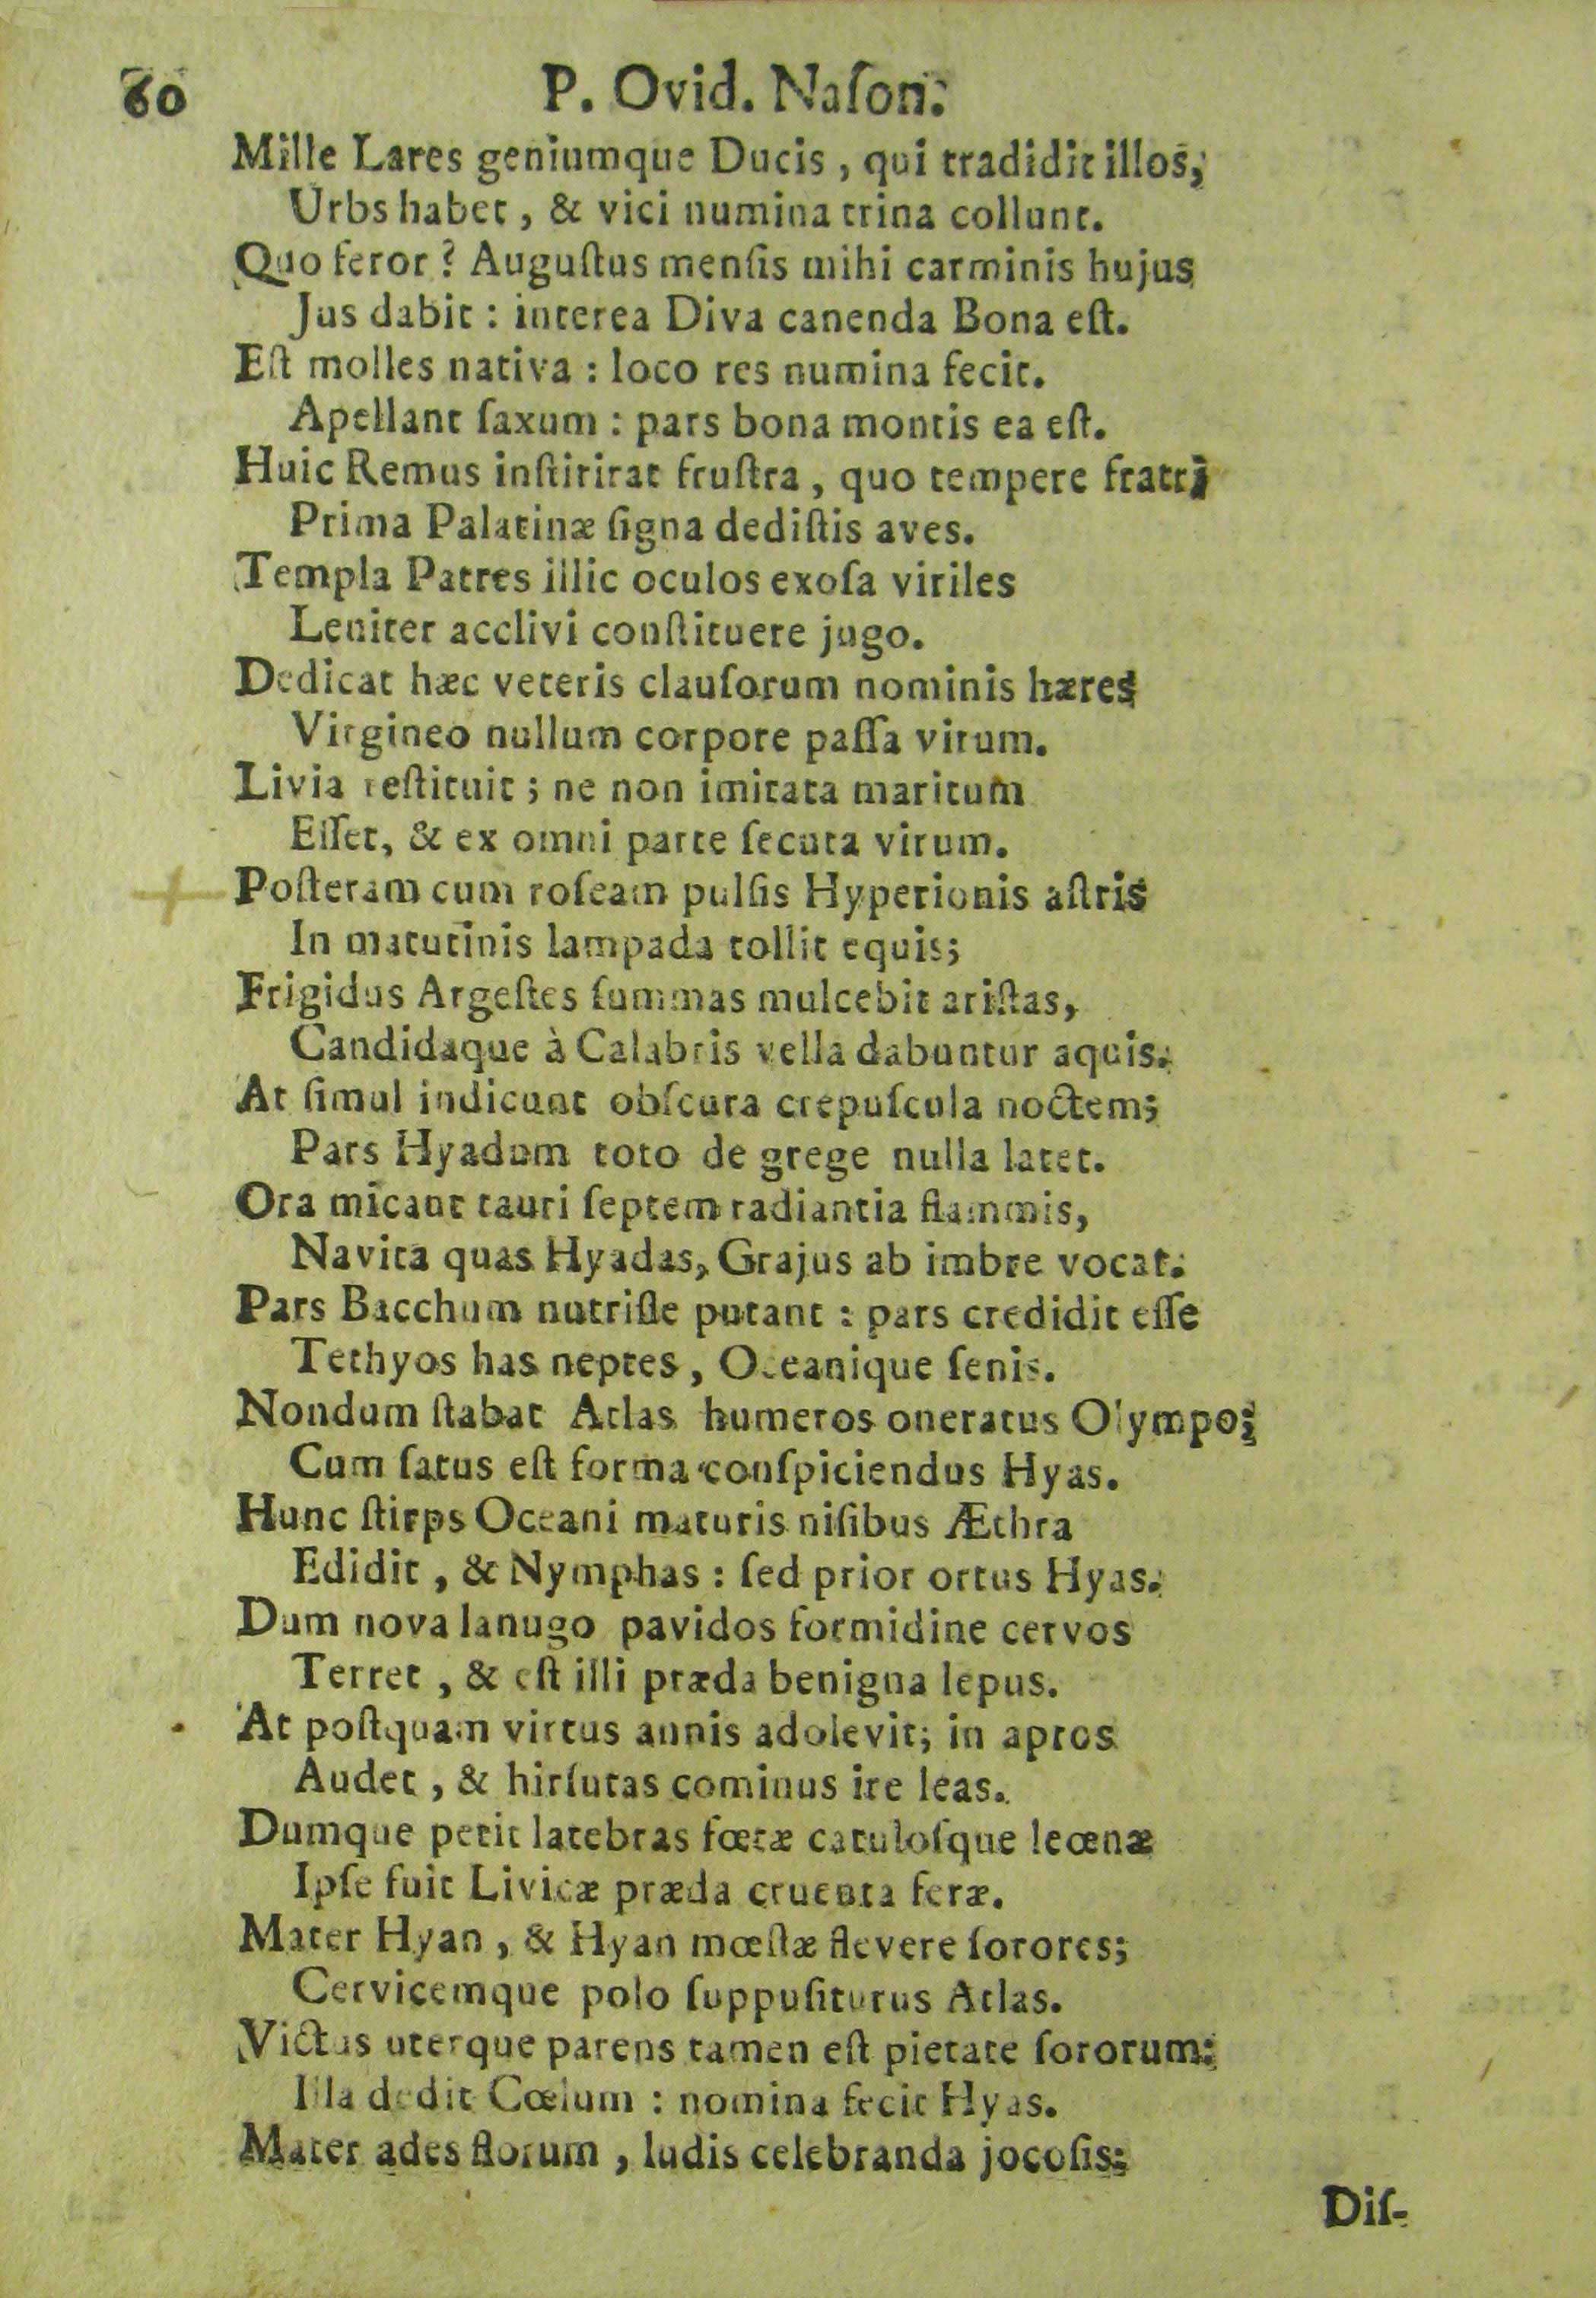 60 P. Ovid. Naſon.
Mille Lares geniumque Ducis, qui tradidit illos,
Urbs habet, & vici numina trina collunt.
Quo feror? Auguſtus menſis mihi carminis hujus
Jus dabit: interea Diva canenda Bona eſt.
Eſt molles nativa: loco res numina fecit.
Apellant ſaxum: pars bona montis ea eſt.
Huic Remus inſtitirat fruſtra, quo tempere fratri
Prima Palatinæ ſigna dediſtis aves.
Templa Patres illic oculos exoſa viriles
Leniter acclivi conſtituere jugo.
Dedicat hæc veteris clauſorum nominis hæres
Virgineo nullum corpore paſſa virum.
Livia reſtituit; ne non imitata maritum
Eſſet, & ex omni parte ſecuta virum.
Poſteram cum roſeam pulſis Hyperionis aſtris
In matutinis lampada tollit equis;
Frigidus Argeſtes ſummas mulcebit ariſtas,
Candidaque à Calabris vella dabuntur aquis.
At ſimul indicunt obſcura crepuſcula noctem;
Pars Hyadum toto de grege nulla latet.
Ora micant tauri ſeptem radiantia flammis,
Navita quas Hyadas, Grajus ab imbre vocat.
Pars Bacchum nutriſſe putant: pars credidit eſſe
Tethyos has neptes, Oceanique ſenis.
Nondum ſtabat Atlas humeros oneratus Olympo;
Cum ſatus eſt forma conſpiciendus Hyas.
Hunc ſtirps Oceani maturis niſibus Æthra
Edidit, & Nymphas: ſed prior ortus Hyas.
Dum nova lanugo pavidos formidine cervos
Terret, & eſt illi præda benigna lepus.
At poſtquam virtus annis adolevit; in apros
Audet, & hirſutas cominus ire leas.
Dumque petit latebras fœtæ catuloſque leœnæ
Ipſe fuit Livicæ præda cruenta feræ.
Mater Hyan, & Hyan mœſtæ flevere ſorores;
Cervicemque polo ſuppuſiturus Atlas.
Victus uterque parens tamen eſt pietate ſororum:
Illa dedit Cœlum: nomina fecit Hyas.
Mater ades florum, ludis celebranda jocoſis;
Diſ-